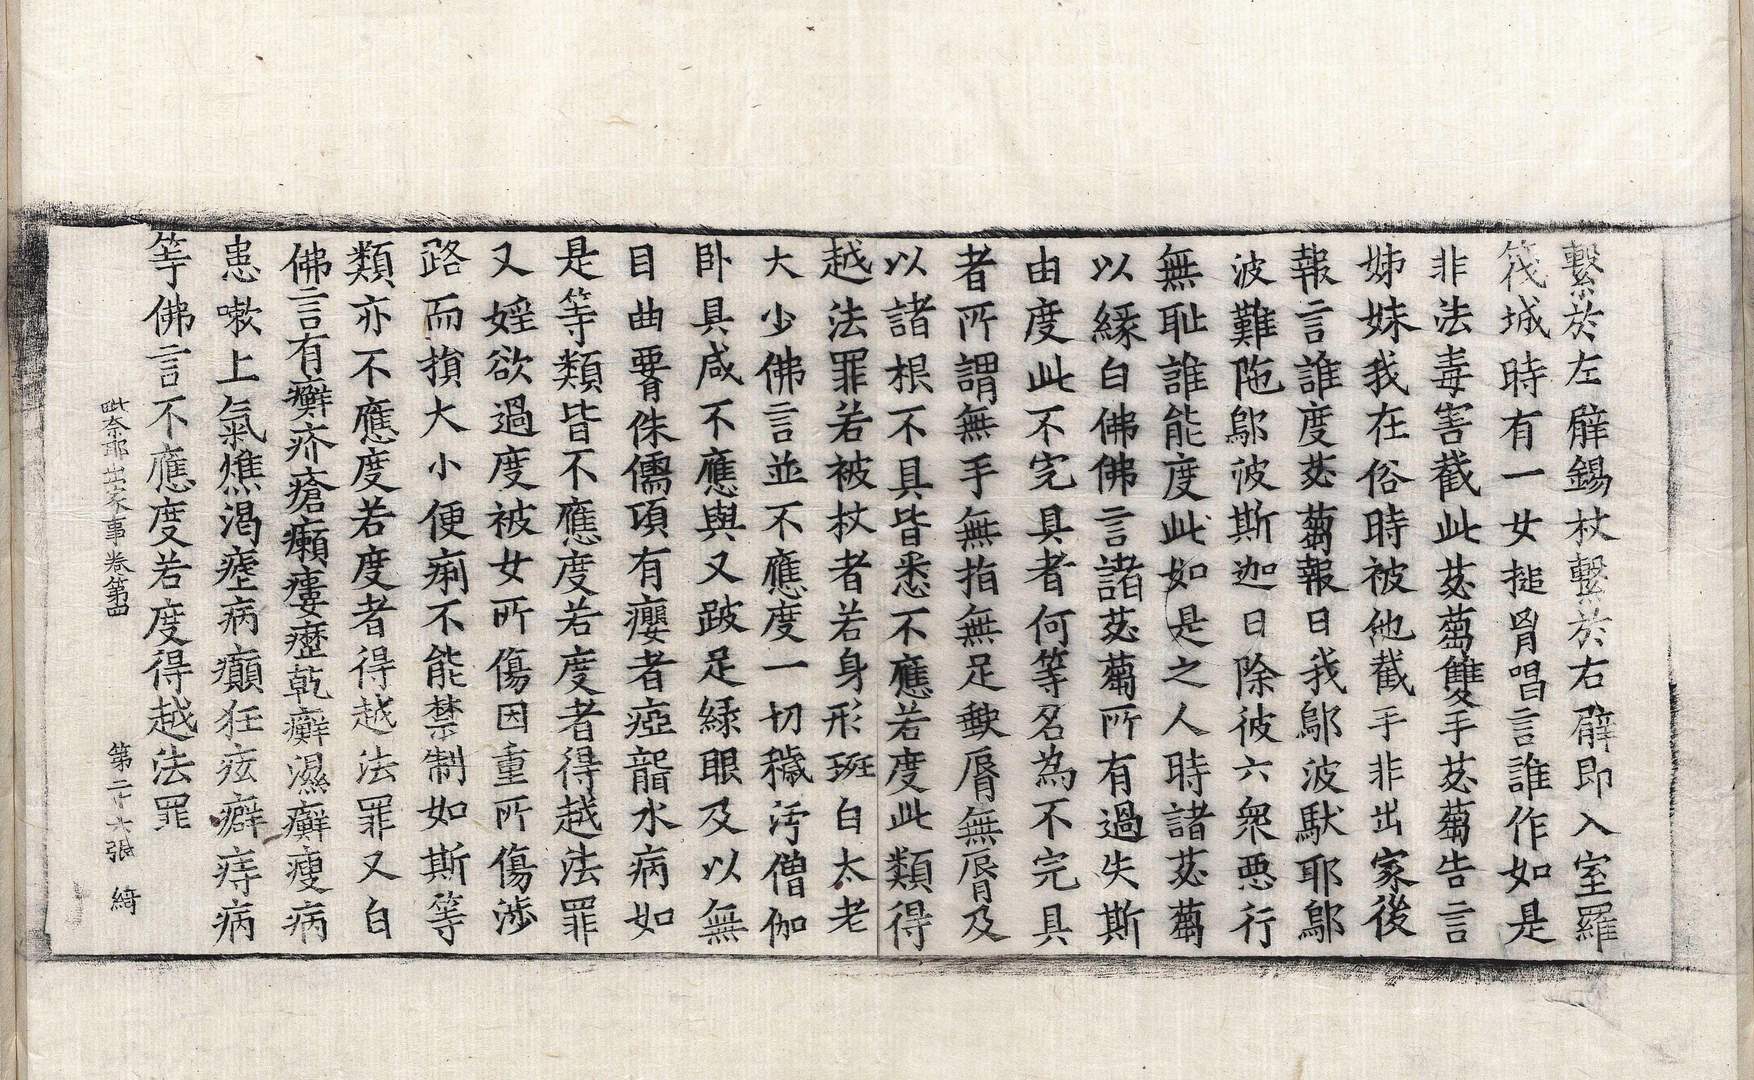 繫於左臂錫杖繫於右臂即入室羅
筏城時有一女搥胷唱言誰作如是
非法毒害截此苾蒭雙手苾蒭告言
姊妹我在俗時被他截手非出家後
報言誰度苾蒭報曰我鄔波馱耶鄔
波難陁鄔波斯迦曰除彼六衆惡行
無恥誰能度此如是之人時諸苾蒭
以緣白佛佛言諸苾蒭所有過失斯
由度此不完具者何等名為不完具
者所謂無手無指無足𡙇脣無脣及
以諸根不具皆悉不應若度此類得
越法罪若被杖者若身形斑白太老
大少佛言並不應度一切穢汚僧伽
卧具咸不應與又跛足綠眼及以無
目曲𦝫侏儒項有癭者瘂聾水病如
是等類皆不應度若度者得越法罪
又婬欲過度被女所傷因重所傷涉
路而損大小便痢不能禁制如斯等
類亦不應度若度者得越法罪又白
佛言有癬疥瘡癩瘻㾜乾癬濕癬瘦病
患嗽上氣燋渴瘧病癲狂痃癖痔病
等佛言不應度若度得越法罪
毗奈耶出家事卷第四 第二十六張 綺